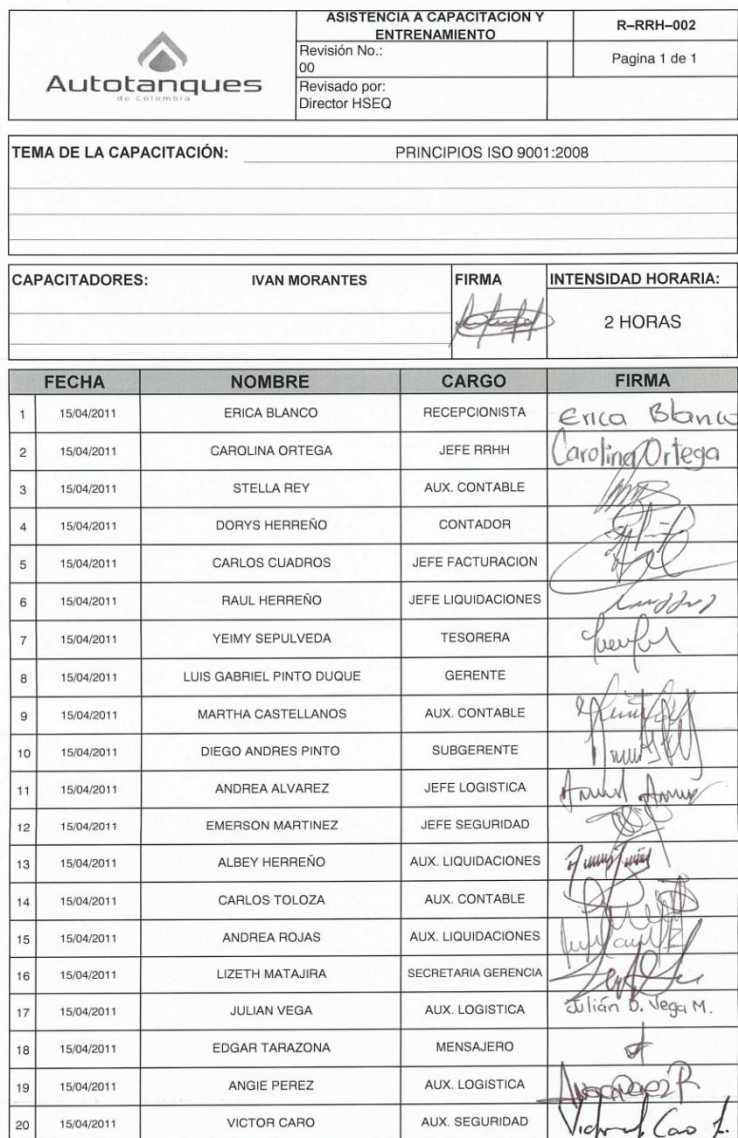 Autotanques
de Colombia
ASISTENCIA A CAPACITACION Y
ENTRENAMIENTO
R–RRH–002
Revisión No.:
00
Pagina 1 de 1
Revisado por:
Director HSEQ
TEMA DE LA CAPACITACIÓN: PRINCIPIOS ISO 9001:2008
CAPACITADORES: IVAN MORANTES FIRMA INTENSIDAD HORARIA:
2 HORAS
FECHA NOMBRE CARGO FIRMA
1 15/04/2011 ERICA BLANCO RECEPCIONISTA Erica Blanco
2 15/04/2011 CAROLINA ORTEGA JEFE RRHH Carolina Ortega
3 15/04/2011 STELLA REY AUX. CONTABLE
4 15/04/2011 DORYS HERREÑO CONTADOR
5 15/04/2011 CARLOS CUADROS JEFE FACTURACION
6 15/04/2011 RAUL HERREÑO JEFE LIQUIDACIONES
7 15/04/2011 YEIMY SEPULVEDA TESORERA
8 15/04/2011 LUIS GABRIEL PINTO DUQUE GERENTE
9 15/04/2011 MARTHA CASTELLANOS AUX. CONTABLE
10 15/04/2011 DIEGO ANDRES PINTO SUBGERENTE
11 15/04/2011 ANDREA ALVAREZ JEFE LOGISTICA
12 15/04/2011 EMERSON MARTINEZ JEFE SEGURIDAD
13 15/04/2011 ALBEY HERREÑO AUX. LIQUIDACIONES
14 15/04/2011 CARLOS TOLOZA AUX. CONTABLE
15 15/04/2011 ANDREA ROJAS AUX. LIQUIDACIONES
16 15/04/2011 LIZETH MATAJIRA SECRETARIA GERENCIA
17 15/04/2011 JULIAN VEGA AUX. LOGISTICA Julián D. Vega M.
18 15/04/2011 EDGAR TARAZONA MENSAJERO
19 15/04/2011 ANGIE PEREZ AUX. LOGISTICA
20 15/04/2011 VICTOR CARO AUX. SEGURIDAD